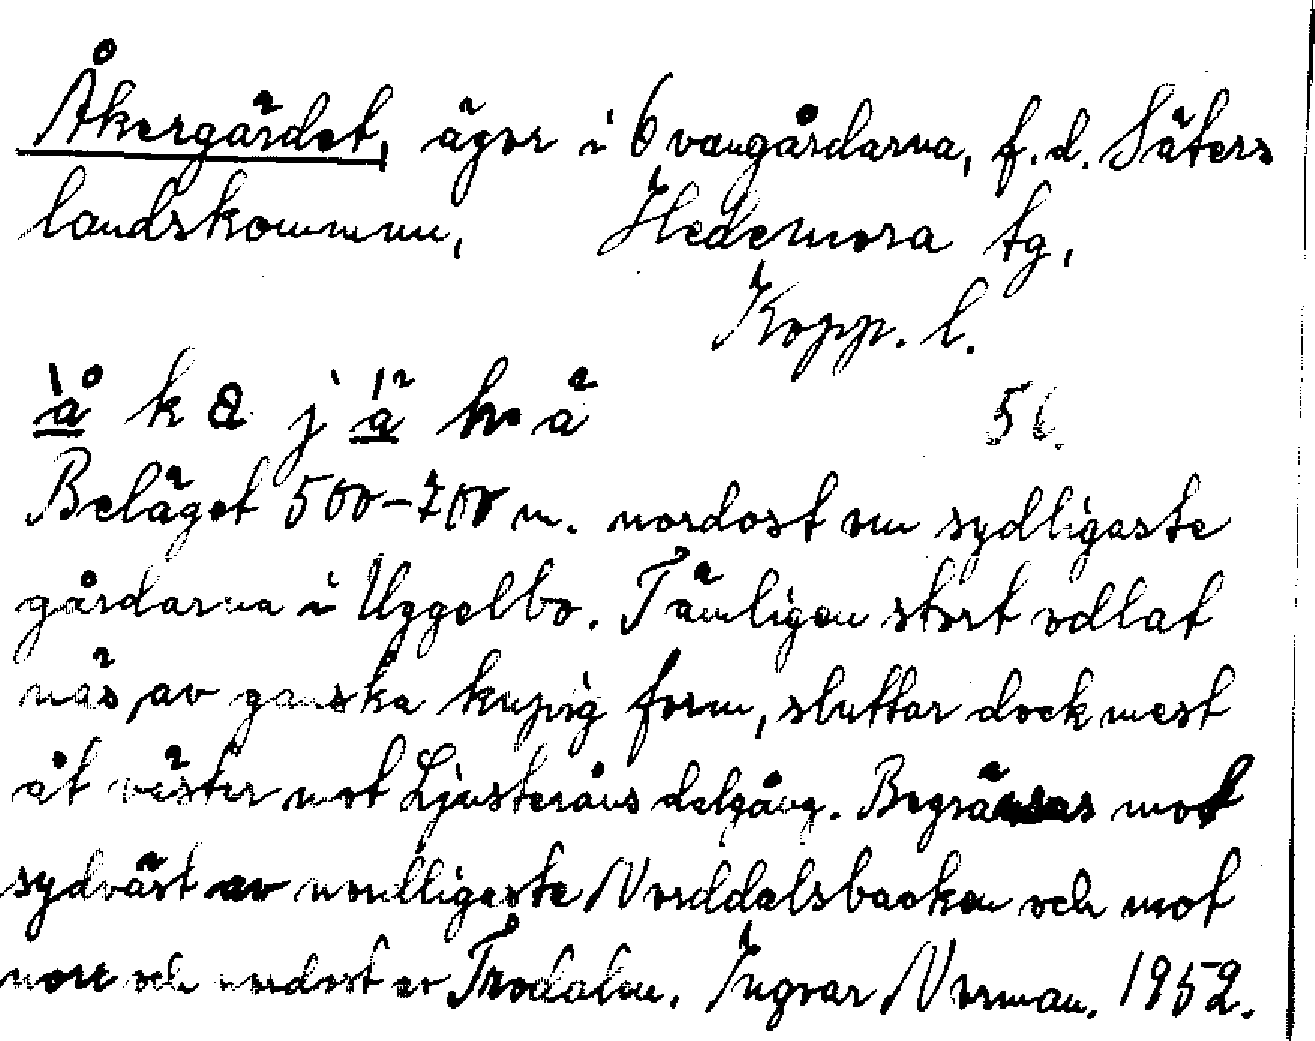 Åkergärdet, ägor i Ovangårdarna, f.d. Säters
landskommun, Hedemora tg,
Kopp. l.
å k a j ä ḷ. ä
Beläget 500-700 m. nordost om sydligaste
gårdarna i Uggelbo. Tämligen stort odlat
näs, av ganska kupig form, sluttar dock mest
åt väster mot Ljusteråns dalgång. Begränsas mot
sydväst av nordligaste Norddalsbacken och mot
norr och nordost av Trodalen. Ingvar Norman. 1952.